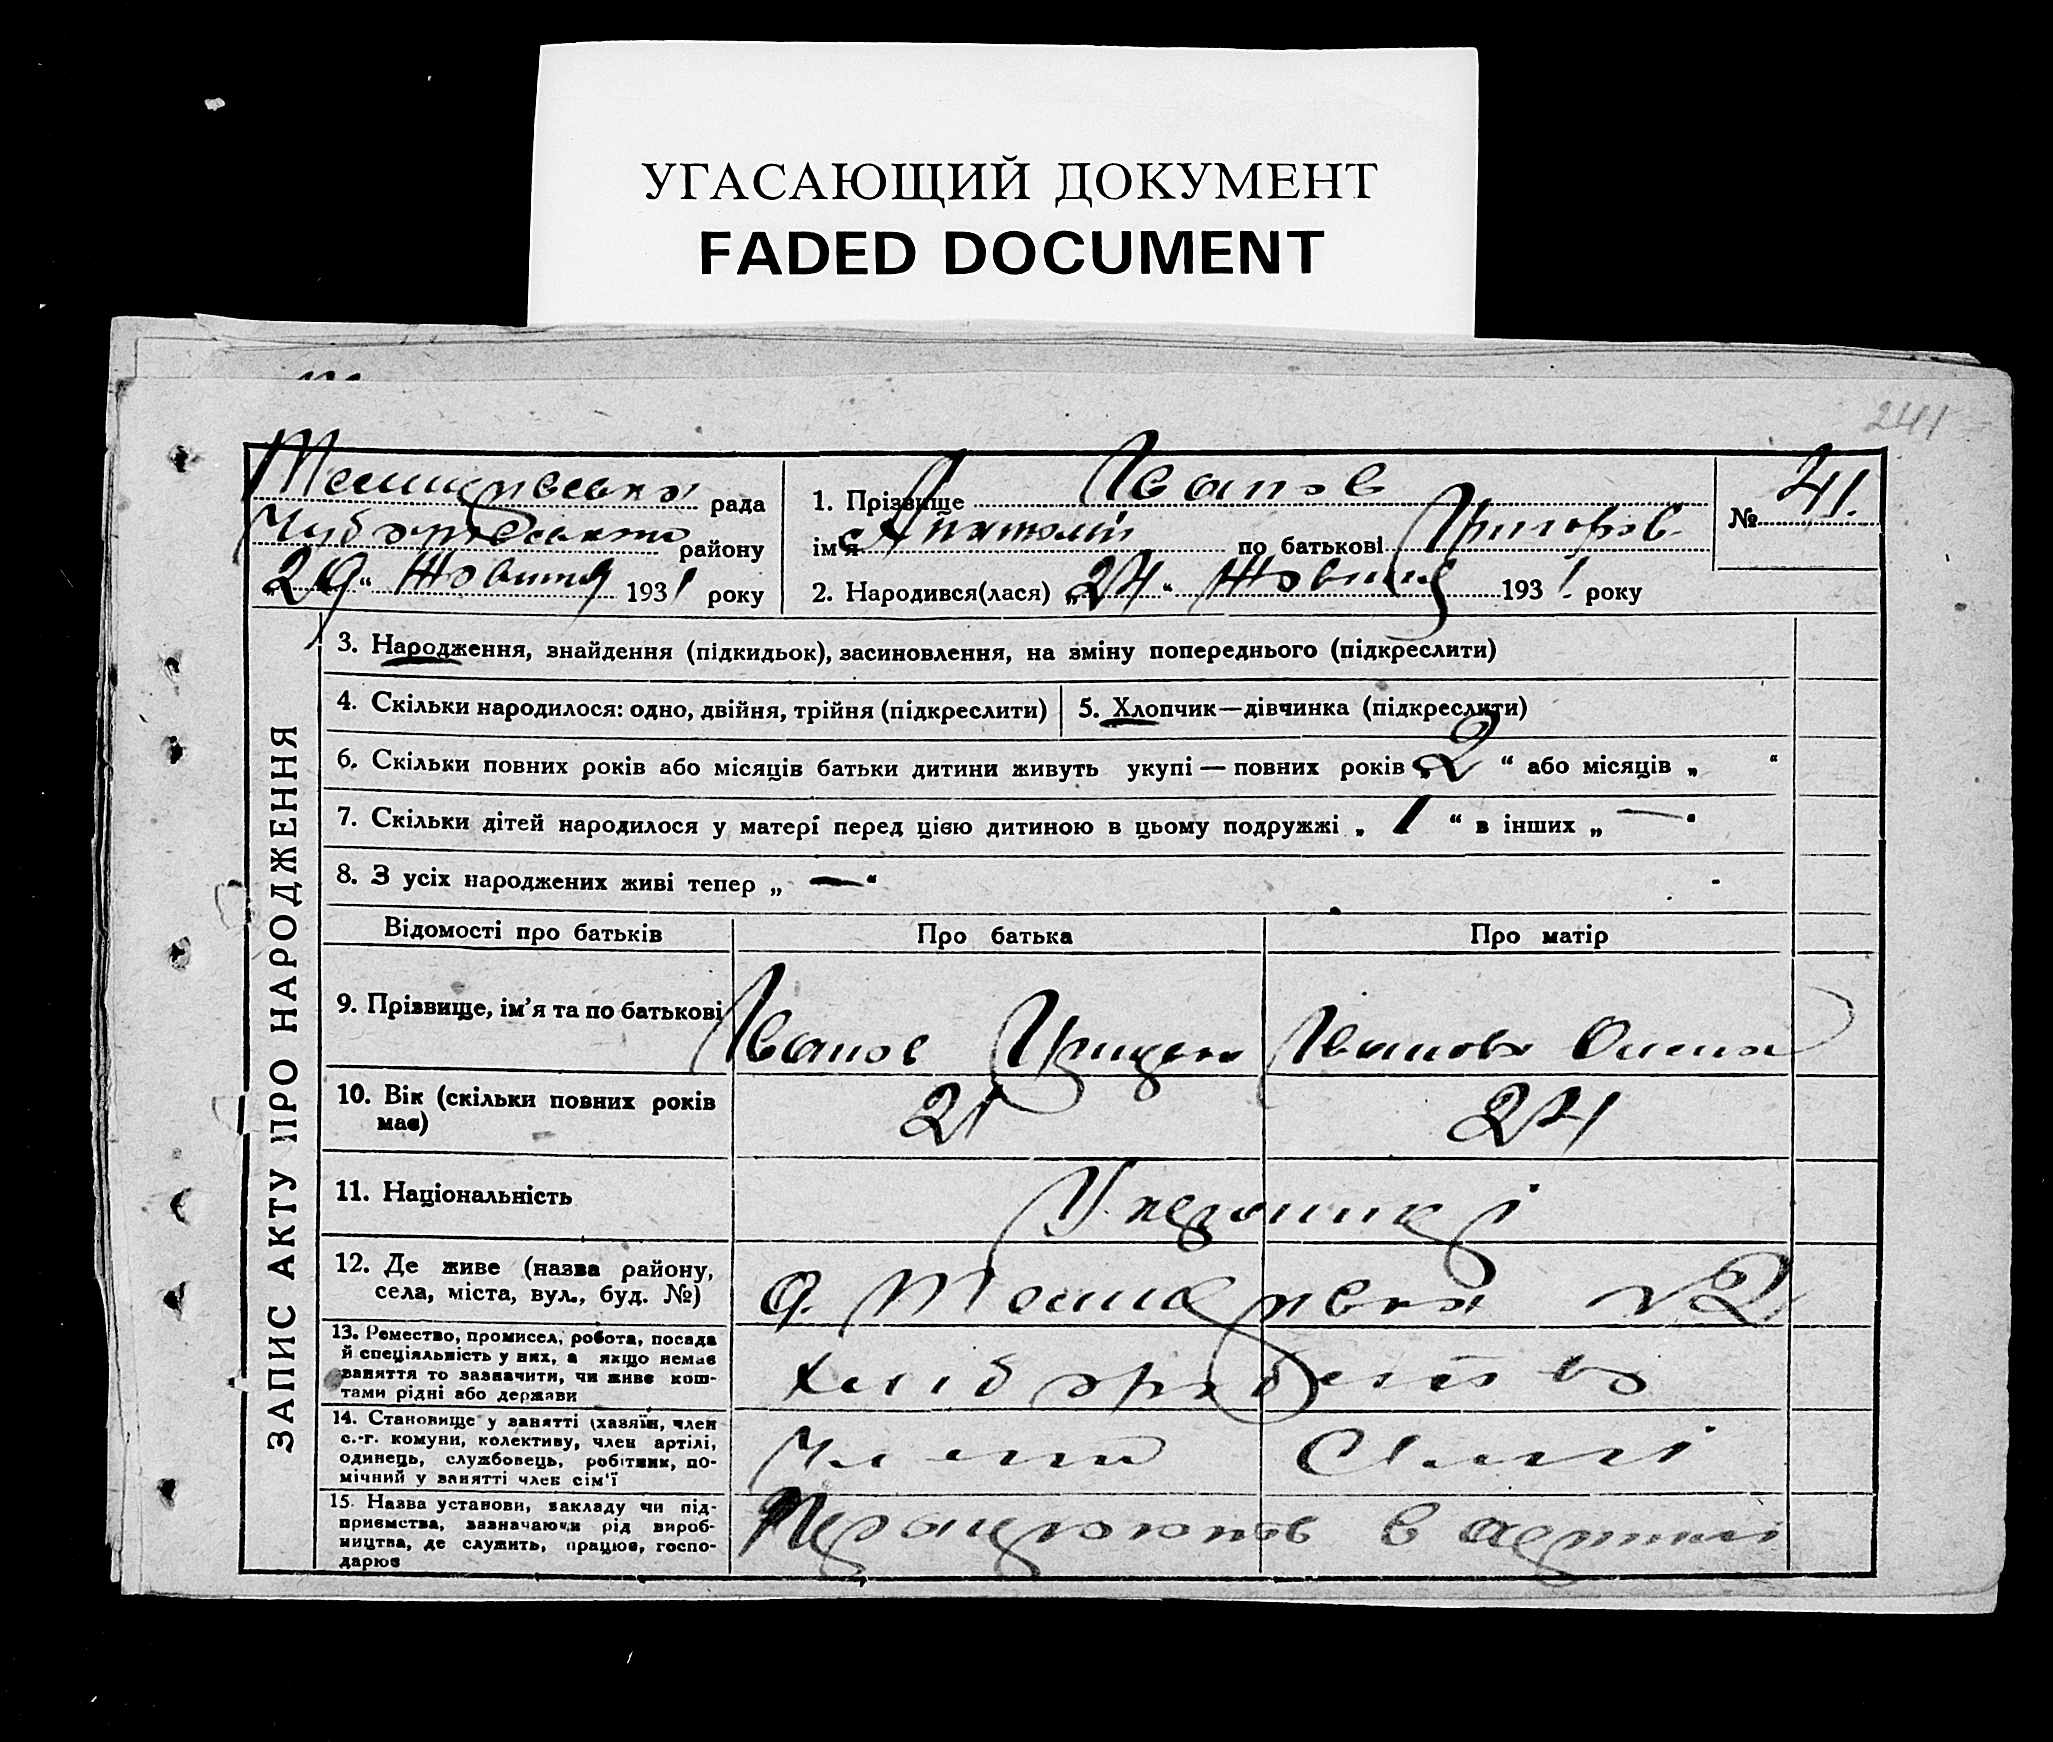 УГАСАЮЩИЙ ДОКУМЕНТ
FADED DOCUMENT
241
рада
району
"29" Жовтня 1931 року
1. Прізвище Іванов
ім'я Анатолій по батькові Григоров.
2. Народився(лася) "24" Жовтня 1931 року
№ 41.
ЗАПИС АКТУ ПРО НАРОДЖЕННЯ
3. Народження, знайдення (підкидьок), засиновлення, на зміну попереднього (підкреслити)
4. Скільки народилося: одно, двійня, трійня (підкреслити)
5. Хлопчик—дівчинка (підкреслити)
6. Скільки повних років або місяців батьки дитини живуть укупі — повних років „2“ або місяців „ “
7. Скільки дітей народилося у матері перед цією дитиною в цьому подружжі „1“ в інших „—“
8. З усіх народжених живі тепер „—“
Відомості про батьків
Про батька
Про матір
9. Прізвище, ім'я та по батькові
Іванов Грицько
Іванова Олена
10. Вік (скільки повних років
має)
21
24
11. Національність
Українці
12. Де живе (назва району,
села, міста, вул., буд. №)
№2
13. Ремество, промисел, робота, посада
й спеціяльність у них, а якщо немає
заняття то зазначити, чи живе кош-
тами рідні або держави
Хліборобство
14. Становище у занятті (хазяїн, член
с.-г. комуни, колективу, член артілі,
одинець, службовець, робітник, по-
мічний у занятті член сім'ї
Члени
15. Назва установи, закладу чи під-
приємства, зазначаючи рід вироб-
ництва, де служить, працює, госпо-
дарює
Працюють в артілі